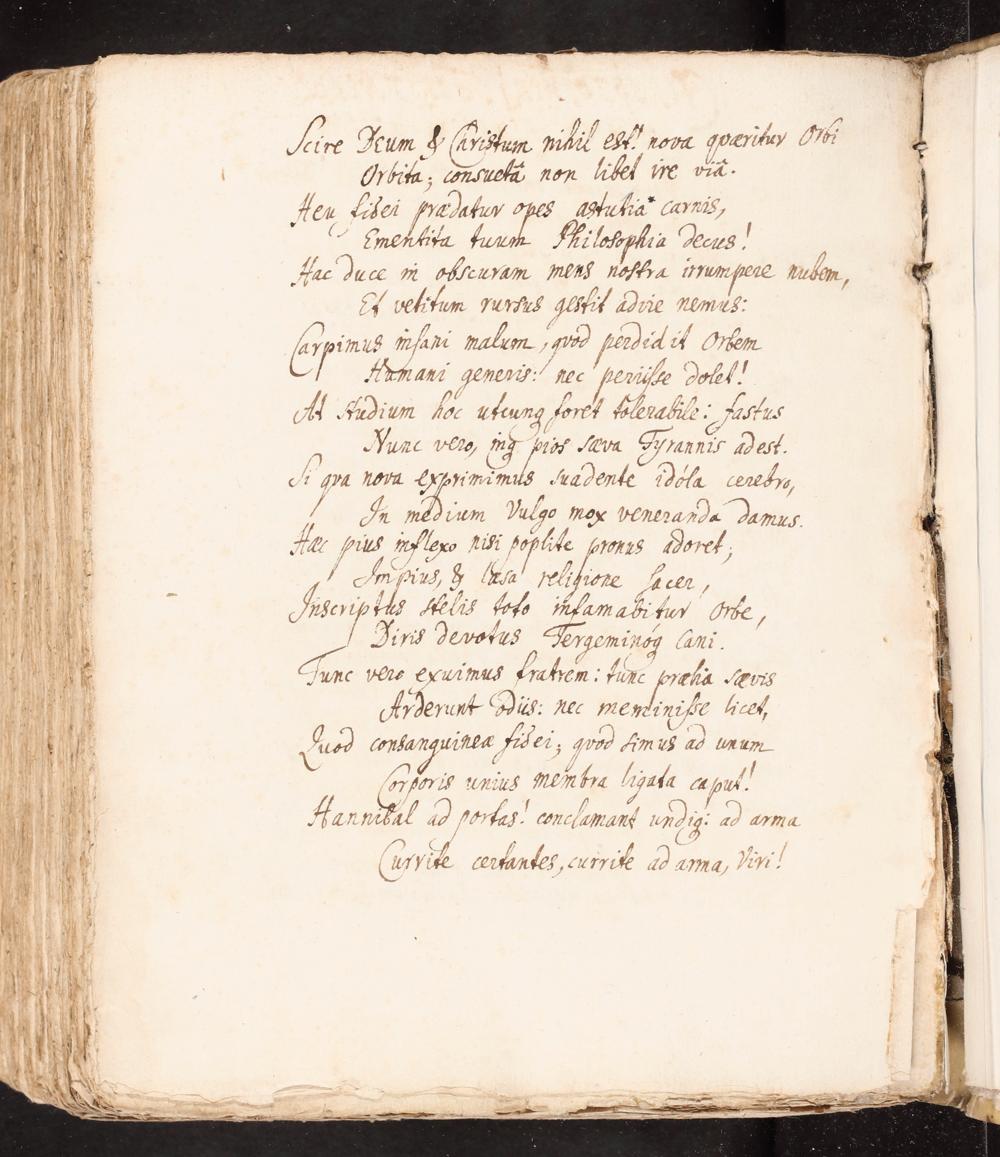 Scire Deum & Christum nihil est! nova quæritur Orbi
Orbita; consuetâ non libet ire viâ.
Heu fidei prædatur opes astutia carnis,
Ementita tuum Philosophia decus!
Hac duce in obscuram mens nostra irrumpere nubem,
Et vetitum rursus gestit adire nemus:
Carpimus insani malum, quod perdidit Orbem
Humani generis: nec periisse dolet!
At studium hoc utcunq foret tolerabile: fastus
Nunc vero, inq pios sæva Tyrannis adest.
Si qua nova exprimimus suadente idôla cerebro,
In medium Vulgo mox veneranda damus.
Hæc pius inflexo nisi poplite pronus adoret;
Impius, & læsa religione sacer,
Inscriptus stelis toto infamabitur Orbe,
Diris devotus Tergeminóq Cani.
Tunc vero exuimus fratrem: tunc prælia sævis
Arderunt odiis: nec meminisse licet,
Quod consanguineæ fidei; quod simus ad unum
Corporis unius membra ligata caput!
Hannibal ad portas! conclamant undiq: ad arma
Currite certantes, currite ad arma, Viri!